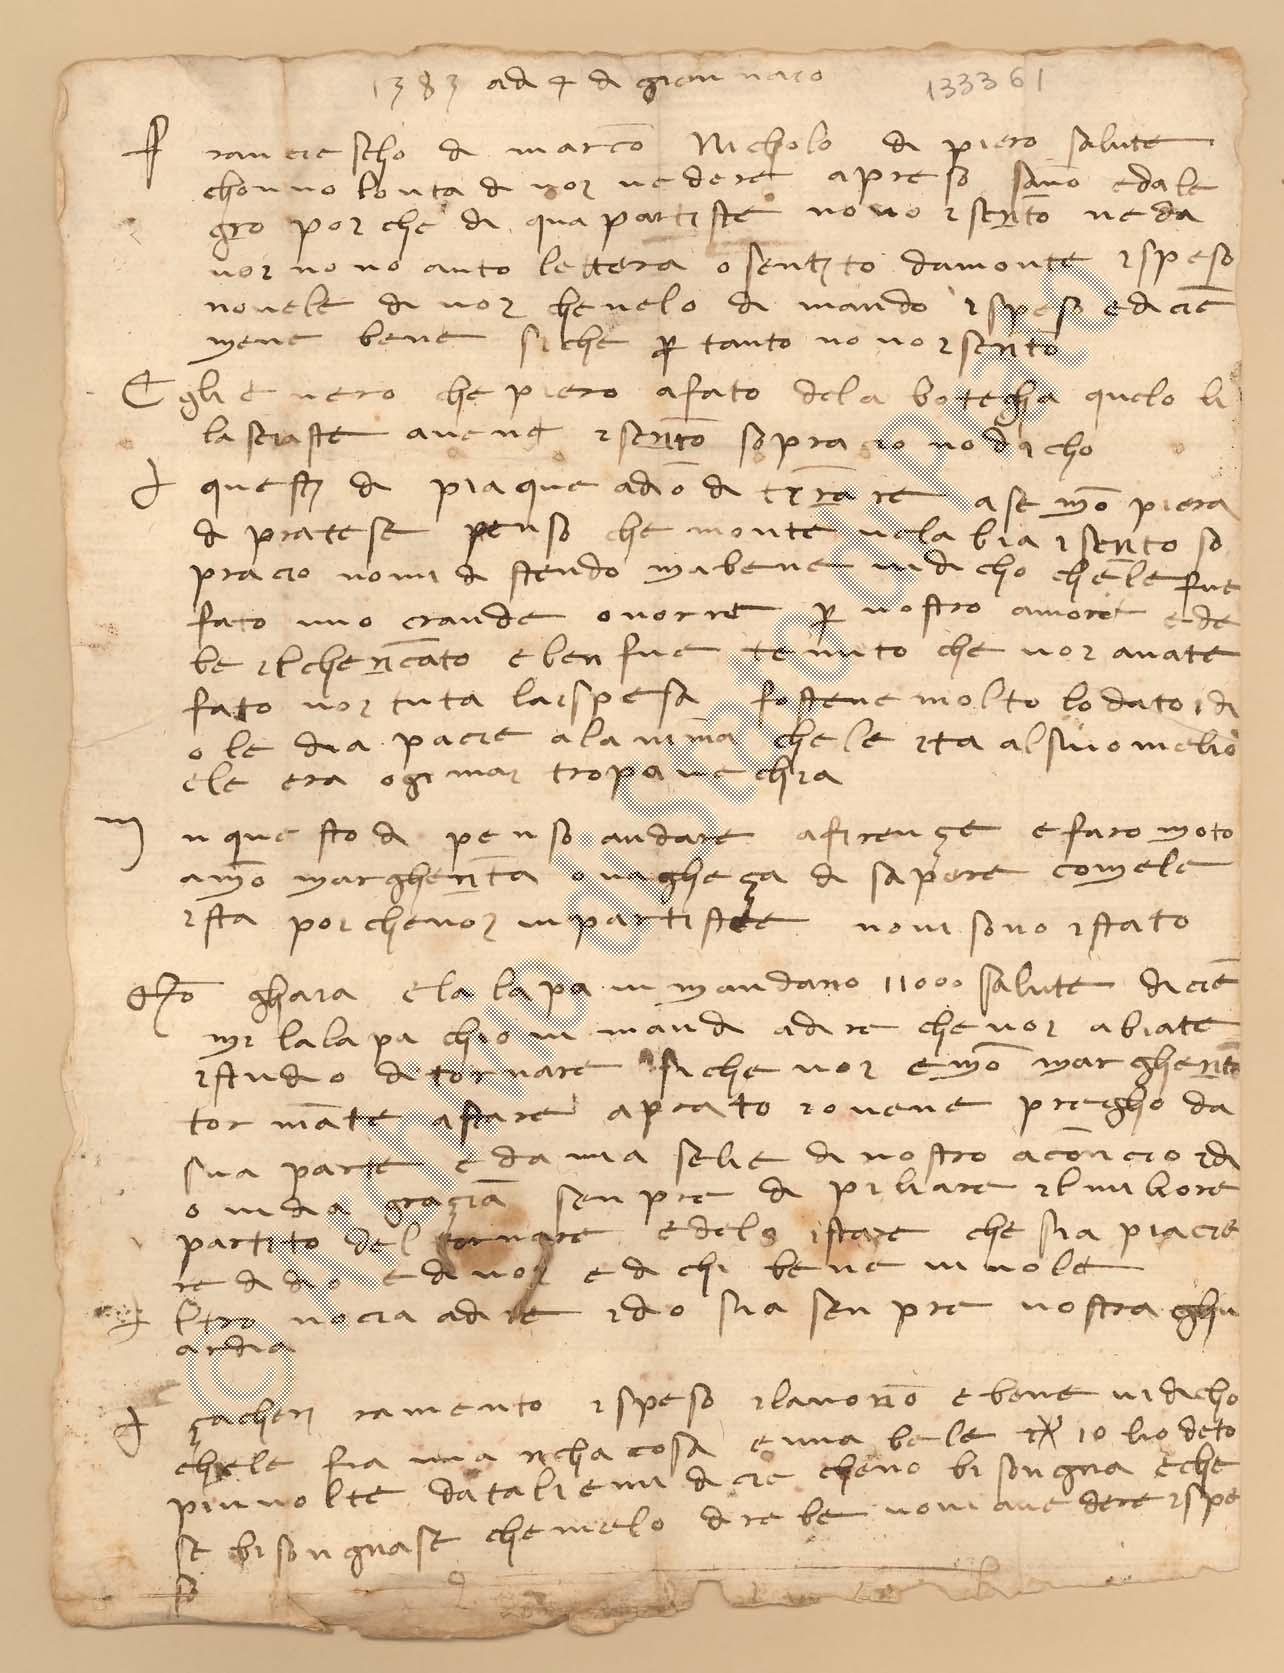 1383 ad 4 di giennaro 133361
Franciescho di marcho Nicholo di piero salute
chonvolonta di voi vedere apreso sano edale
gro poi che di qua partiste nono iscrito ne da
voi no no auto lettera o sentito damonte ispeso
novele di voi chevelo di mando ispeso edicie
mene bene siche per tanto nono iscrito
Eglie vero che piero afato dela botegha quelo li
lasciaste avene iscrito sopracio nodicho
questi di piaque adio di tirare ase mona piera
di pratese penso che monte vela bia iscrito so
pracio nomi distendo mabene vidicho chele fue
fato uno crande onorre per vostro amore ede
be ilchericato eben fue tenuto che voi avate
fato voi tuta laispesa fostene molto lodato idi
o le dia pacie alanima chele ista alsuo melio
ele era ogimai tropa vechia
In questo di penso andare afirençe efaro moto
amona margherita o vagheça di sapere comele
ista poi chevoi vi partiste nomi sono istato
Mona ghaia ela lapa vi mandano 11000 salute dicie
mi lalapa chio vi mandi adire chevoi abiate
istudio ditornare siche voi emona margherita
tormate astare aprato iovene pregho da
sua parte edamia selie di vostro aconcio idi
o vidia gracia senpre di piliare ilmiliore
partito del tornare edelo istare che sia piacie
re didio edivoi edi chi bene vi vole
Altro nocia adire idio sia senpre vostra ghu
ardia
çacheri ramento ispeso ilavorio ebene vidicho
chele fia una richa cosa euna bele io lio deto
piuvolte datalieni dicie cheno bisongna eche
se bisongnase chemelo direbe vomi avedere ispe
so